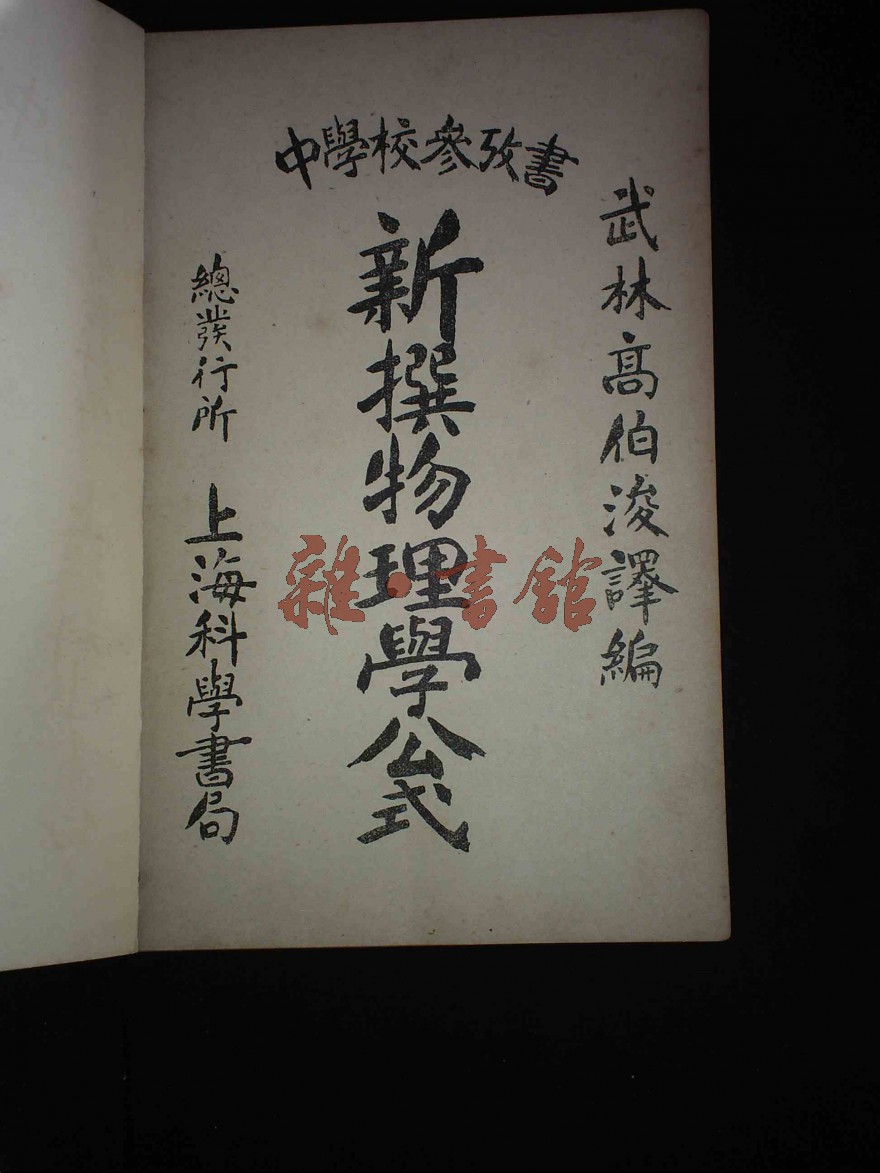 中學校參攷書
武林高伯浚譯編
新撰物理學公式
總發行所 上海科學書局
雜·書館